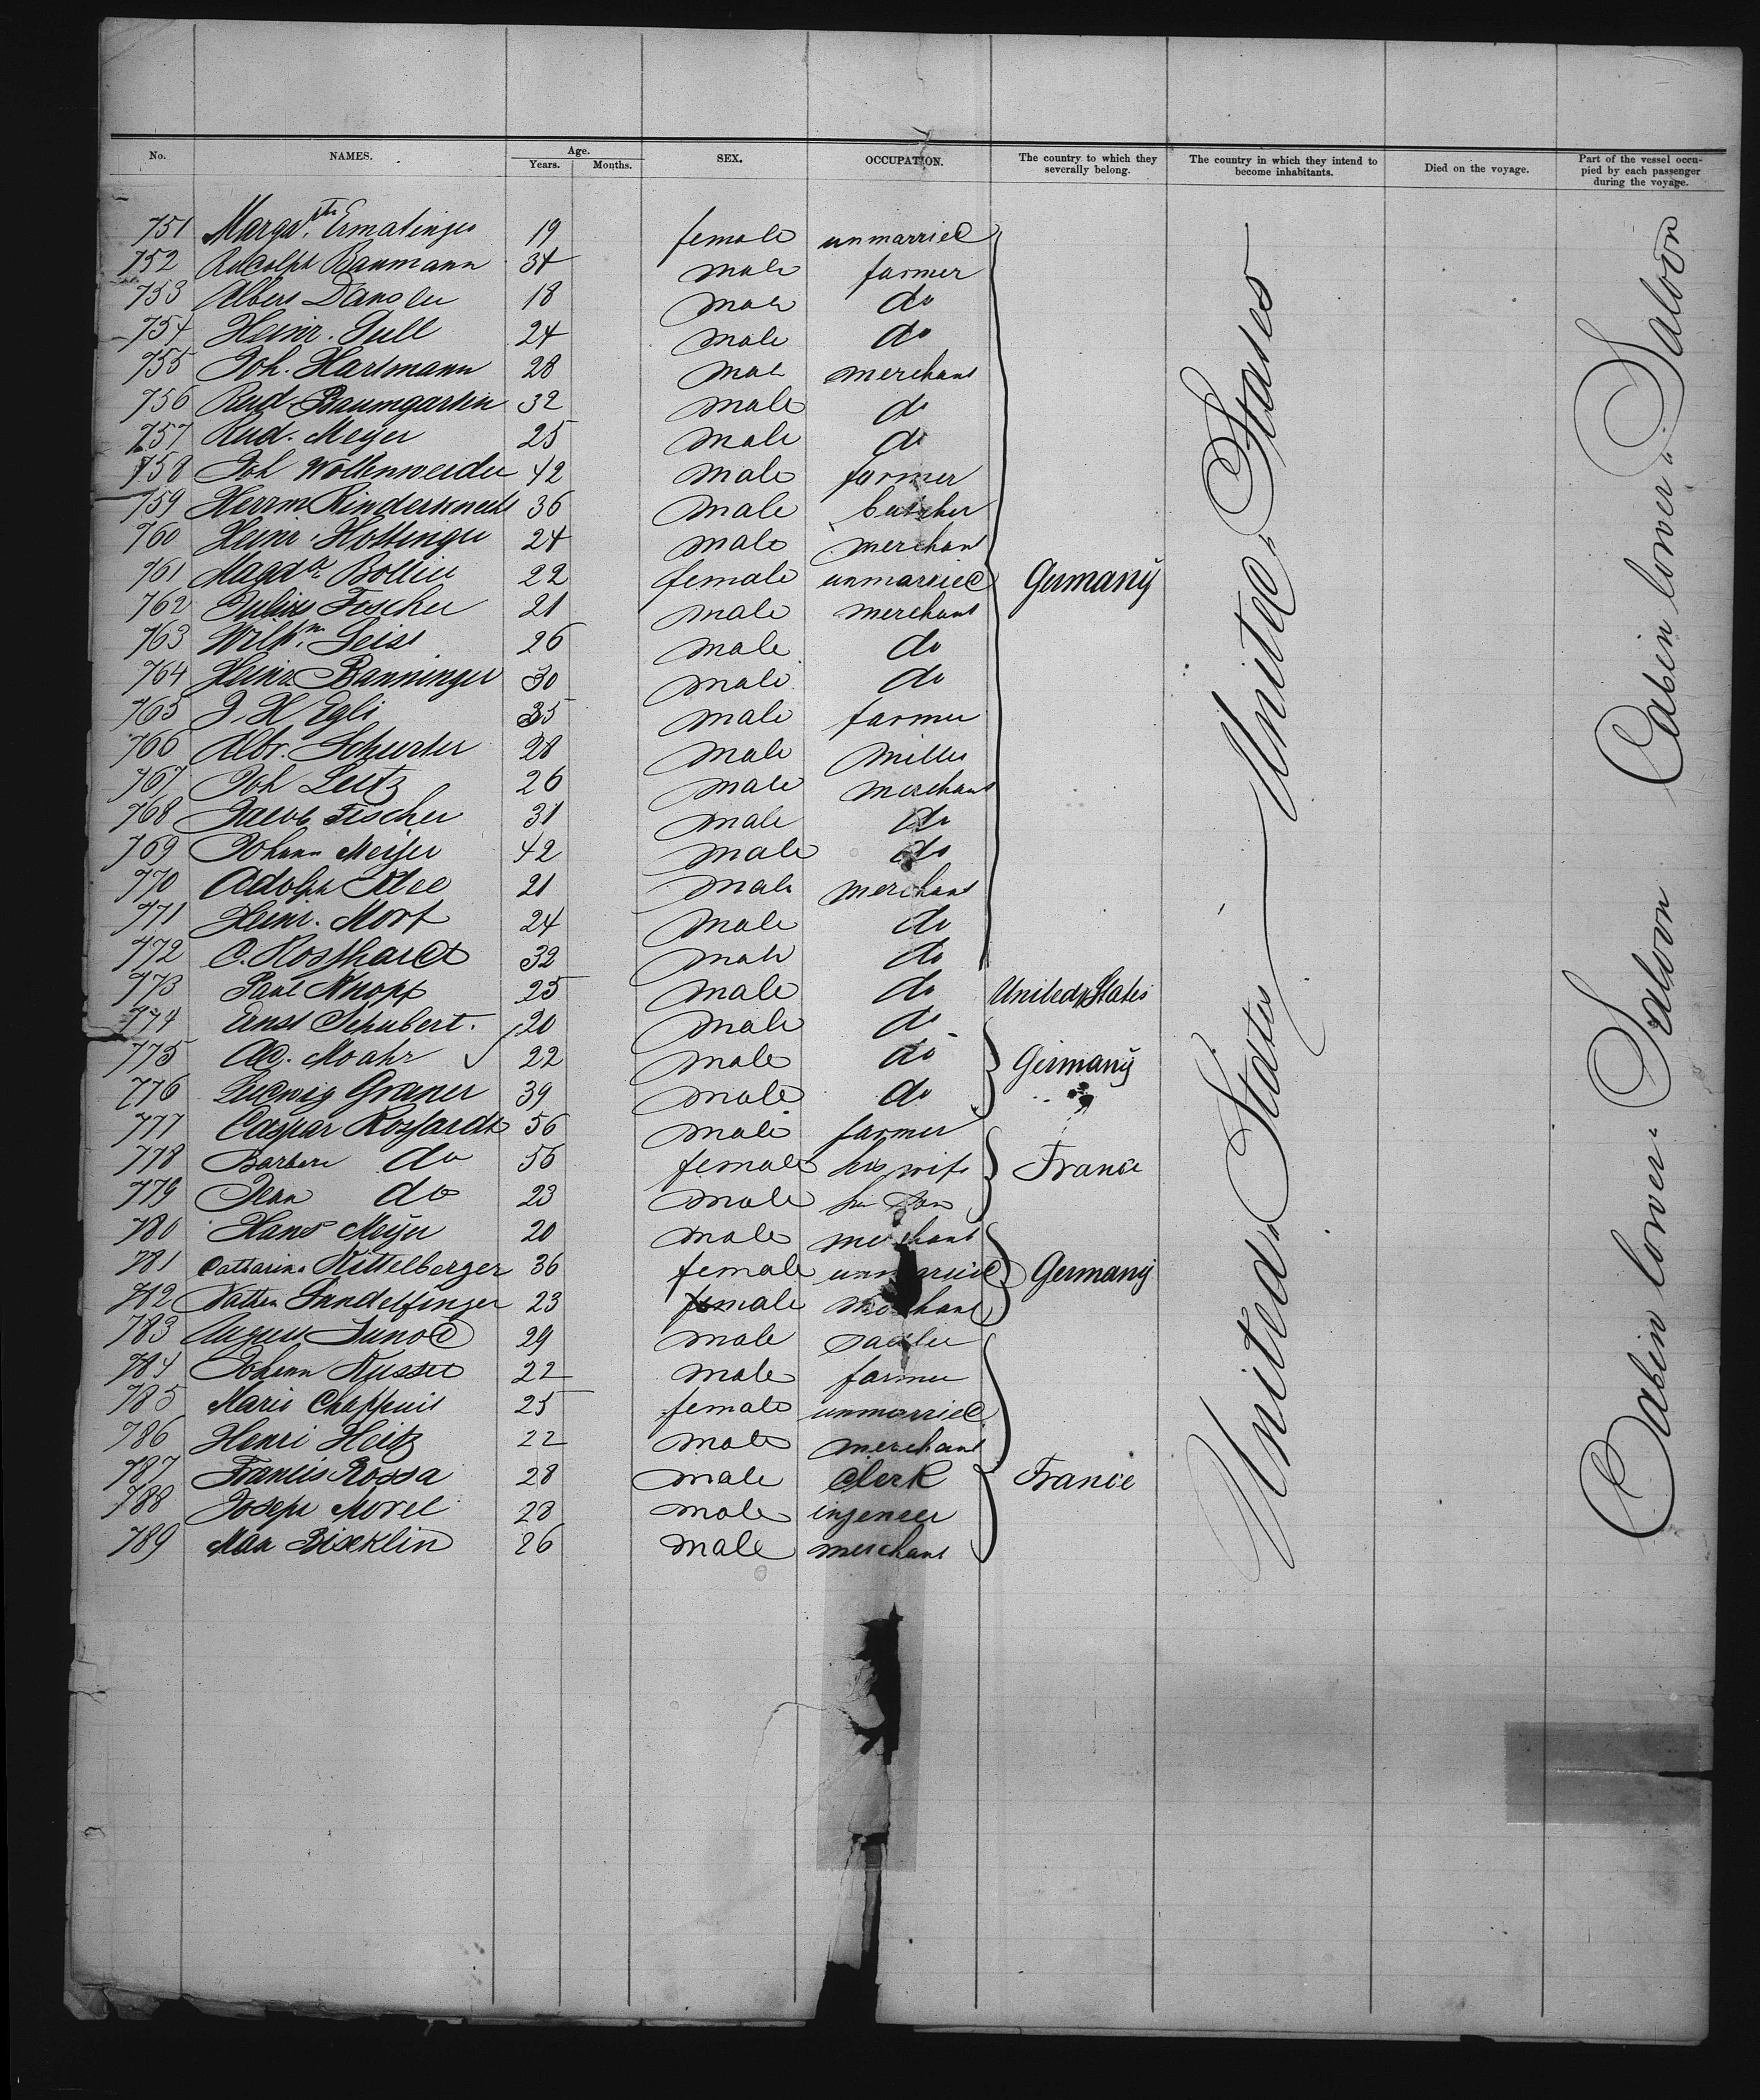 No. NAMES. Age. Years. Months. SEX. OCCUPATION. The country to which they severally belong. The country in which they intend to become inhabitants. Died on the voyage. Part of the vessel occupied by each passenger during the voyage.
751 Margath. Ermatinger 19 female unmarried
752 Rudolph Baumann 34 male farmer
753 Albert 18 male do
754 Heinr. 24 male do
755 Joh. Hartmann 28 male merchant
756 Rud. Baumgarten 32 male do
757 Rud. Meyer 25 male do
758 Joh Wollenweider 42 male farmer
759 Herrm Rinderknecht 36 male butcher
760 Heinr. Hottinger 24 male merchant
761 Magda Bollier 22 female unmarried Germany
762 Julius Fischer 21 male merchant
763 Wilhm. Leiss 26 male do
764 Heinr Banninger 30 male do
765 J. H Egli 35 male farmer
766 Albr. Schurter 28 male miller
767 Joh Leutz 26 male merchant
768 Jacob Fischer 31 male do
769 Johann Meijer 42 male do
770 Adolph Klee 21 male merchant
771 Heinr. Morf 24 male do
772 C. Hosshardt 32 male do
773 Paul Knopf 25 male do United States
774 Ernst Schubert. 20 male do
775 Ad. Moahr 22 male do Germany
776 Ludwig Graner 39 male do
777 Caspar Rossardt 56 male farmer
778 Barbara do 56 female his wife France
779 Jean do 23 male his son
780 Hans Meijer 20 male merchant
781 Catharina Kittelberger 36 female unmarried Germany
782 Nathan Gundelfinger 23 male merchant
783 August Junod 29 male sadler
784 Johann Nusser 22 male farmer
785 Marie Chappuis 25 female unmarried
786 Henri Heitz 22 male merchant
787 Francis Rossa 28 male Clerk France
788 Joseph Morel 28 male ingeneer
789 Max 26 male merchant
United States United States
Cabin lower Saloon Cabin lower Saloon